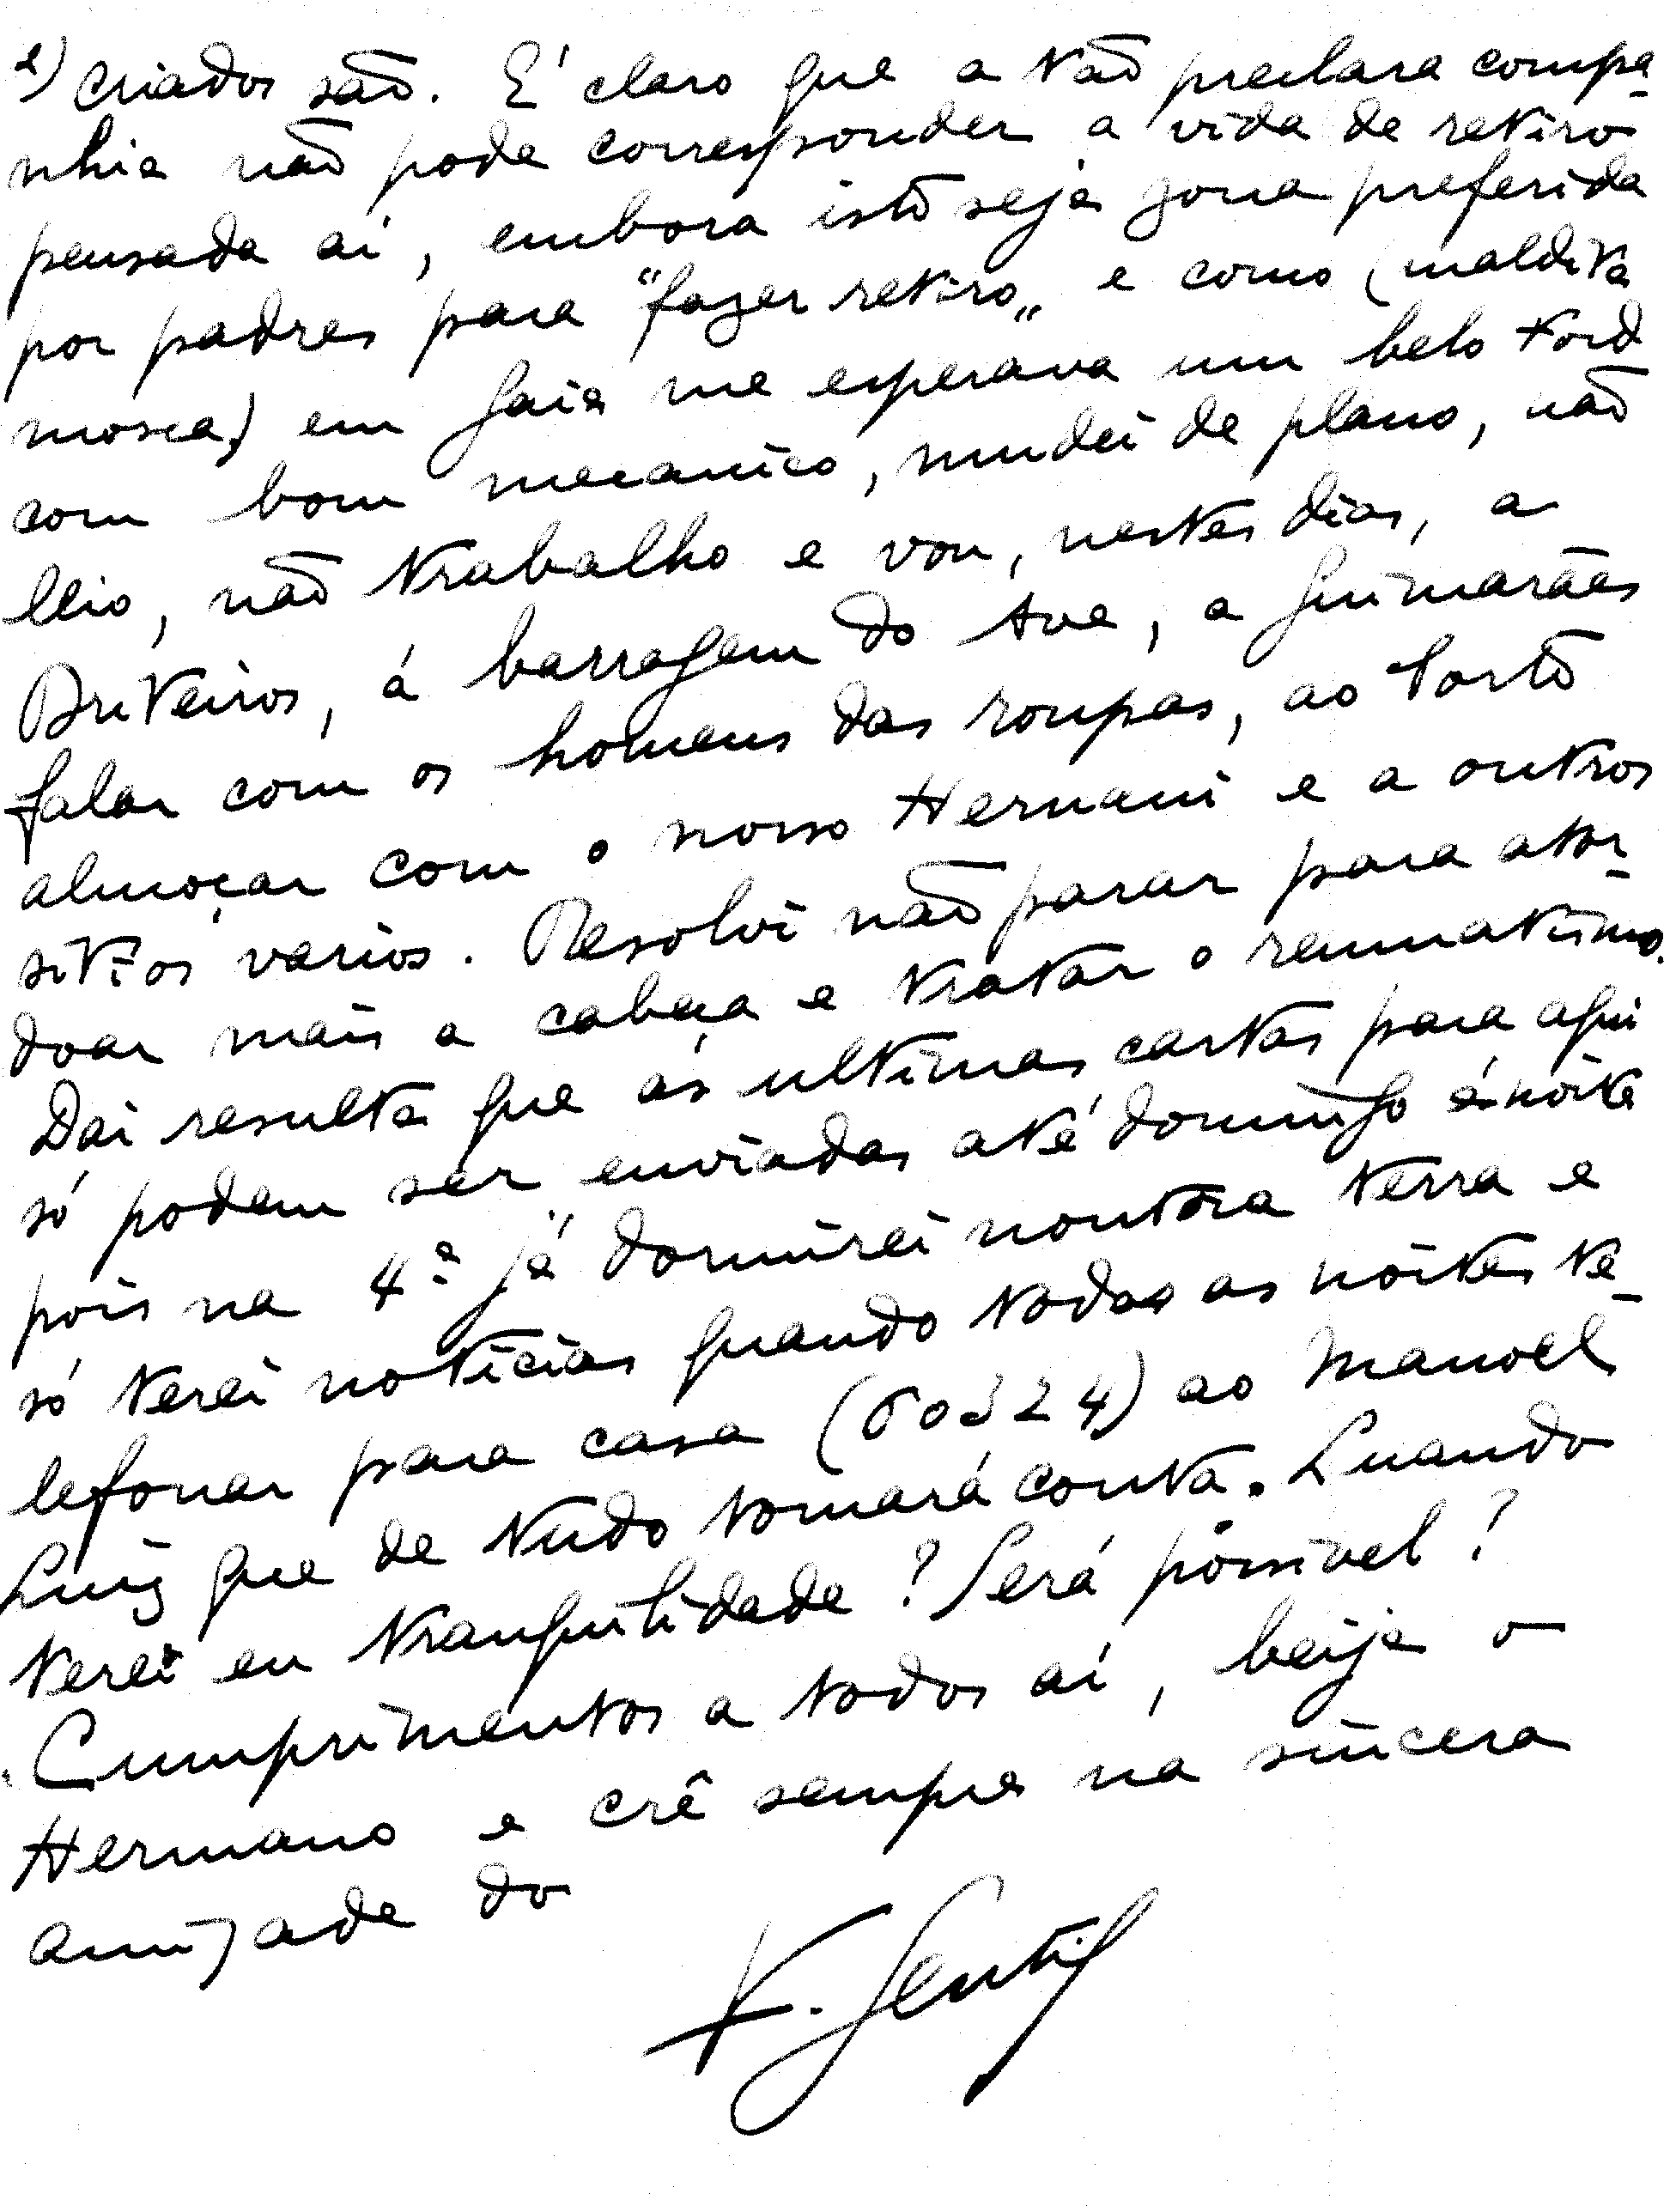 2) criados são. É claro que a tão preclara compa-
nhia não pode corresponder a vida de retiro
pensada aí, embora isto seja zona preferida
por padres para "fazer retiro" e como (maldita
mosca) em Gaia me esperava um belo Ford
com bom mecanico, mudei de plano, não
leio, não trabalho e vou, nestes dias, a
Briteiros, á barragem do Ave, a Guimarães
falar com os homens das roupas, ao Porto
almoçar com o nosso Hernani e a outros
sitios varios. Resolvi não parar para ator-
doar mais a cabeça e tratar o reumatismo.
Dai resulta que as ultimas cartas para aqui
só podem ser enviadas até domingo á noite
pois na 4ª já dormirei noutra terra e
só terei noticias quando todas as noites te-
lefonar para casa (60324) ao Manoel
Luiz que de tudo tomará conta. Quando
terei eu tranquilidade? Será possivel?
Cumprimentos a todos aí, beija o
Hermano e crê sempre na sincera
amizade do
F. Gentil